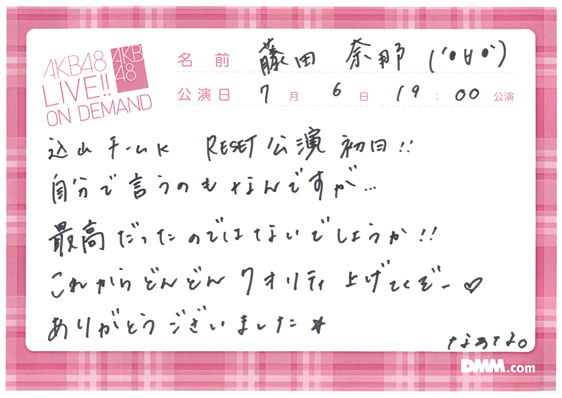 AKB48
LIVE!!
ON DEMAND
AKB
48
名前 藤田 奈那 ('●∀●')
公演日 7月 6日 19:00公演
込山チームK RESET公演 初日!!
自分で言うのもなんですが...
最高だったのではないでしょうか!!
これからどんどん クオリティ 上げてくぞー♡
ありがとうございました★
なぁなぁ。
DMM.com